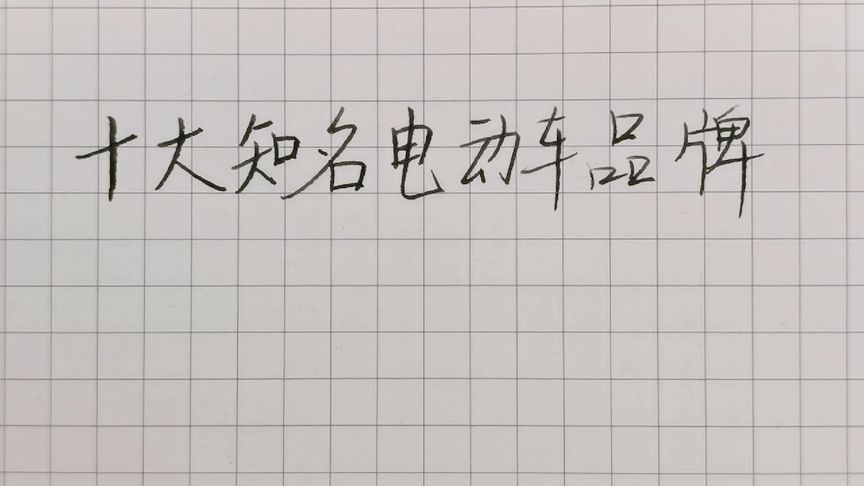 十大知名电动车品牌